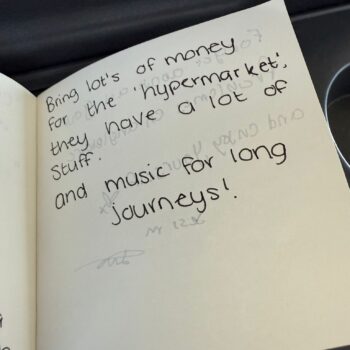 Bring lot's of money
for the 'hypermarket',
they have a lot of
stuff.
and music for long
journeys!